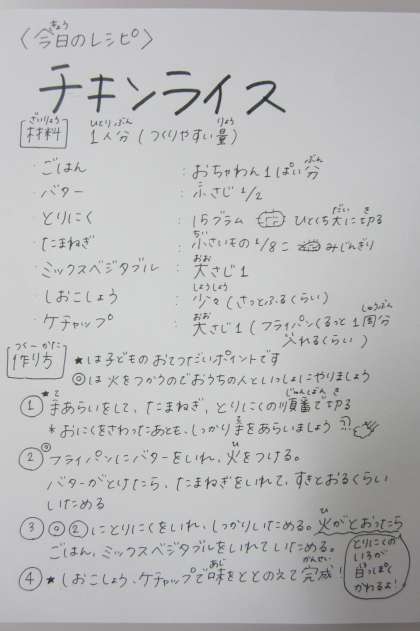 〈今日のレシピ〉
チキンライス
材料 1人分(つくりやすい量)
・ごはん : おちゃわん1ぱい分
・バター : 小さじ1/2
・とりにく : 15グラム ひとくち大に切る
・たまねぎ : 小さいもの1/8こ みじんぎり
・ミックスベジタブル : 大さじ1
・しおこしょう : 少々(さっとふるくらい)
・ケチャップ : 大さじ1(フライパンくるっと1周分
入れるくらい)
作り方 ★は子どものおてつだいポイントです
◎は火をつかうのでおうちの人といっしょにやりましょう
①★手あらいをして、たまねぎ、とりにくの順番で切る
*おにくをさわったあとも、しっかり手をあらいましょう
②◎フライパンにバターをいれ、火をつける。
バターがとけたら、たまねぎをいれて、すきとおるくらい
いためる
③◎②にとりにくをいれ、しっかりいためる。火がとおったら
ごはん、ミックスベジタブルをいれていためる。
④★しおこしょう、ケチャップで味をととのえて完成!
とりにくの
いろが
白っぽく
かわるよ!